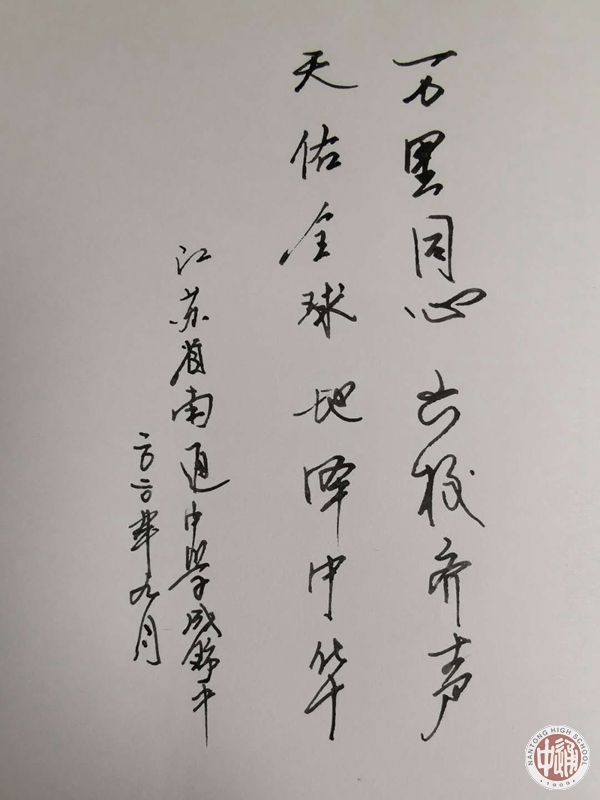 万里同心 六校齐声
天佑全球 地泽中华
江苏省南通中学成锦平
二〇二〇年九月
NANTONG HIGH SCHOOL
中通
1909